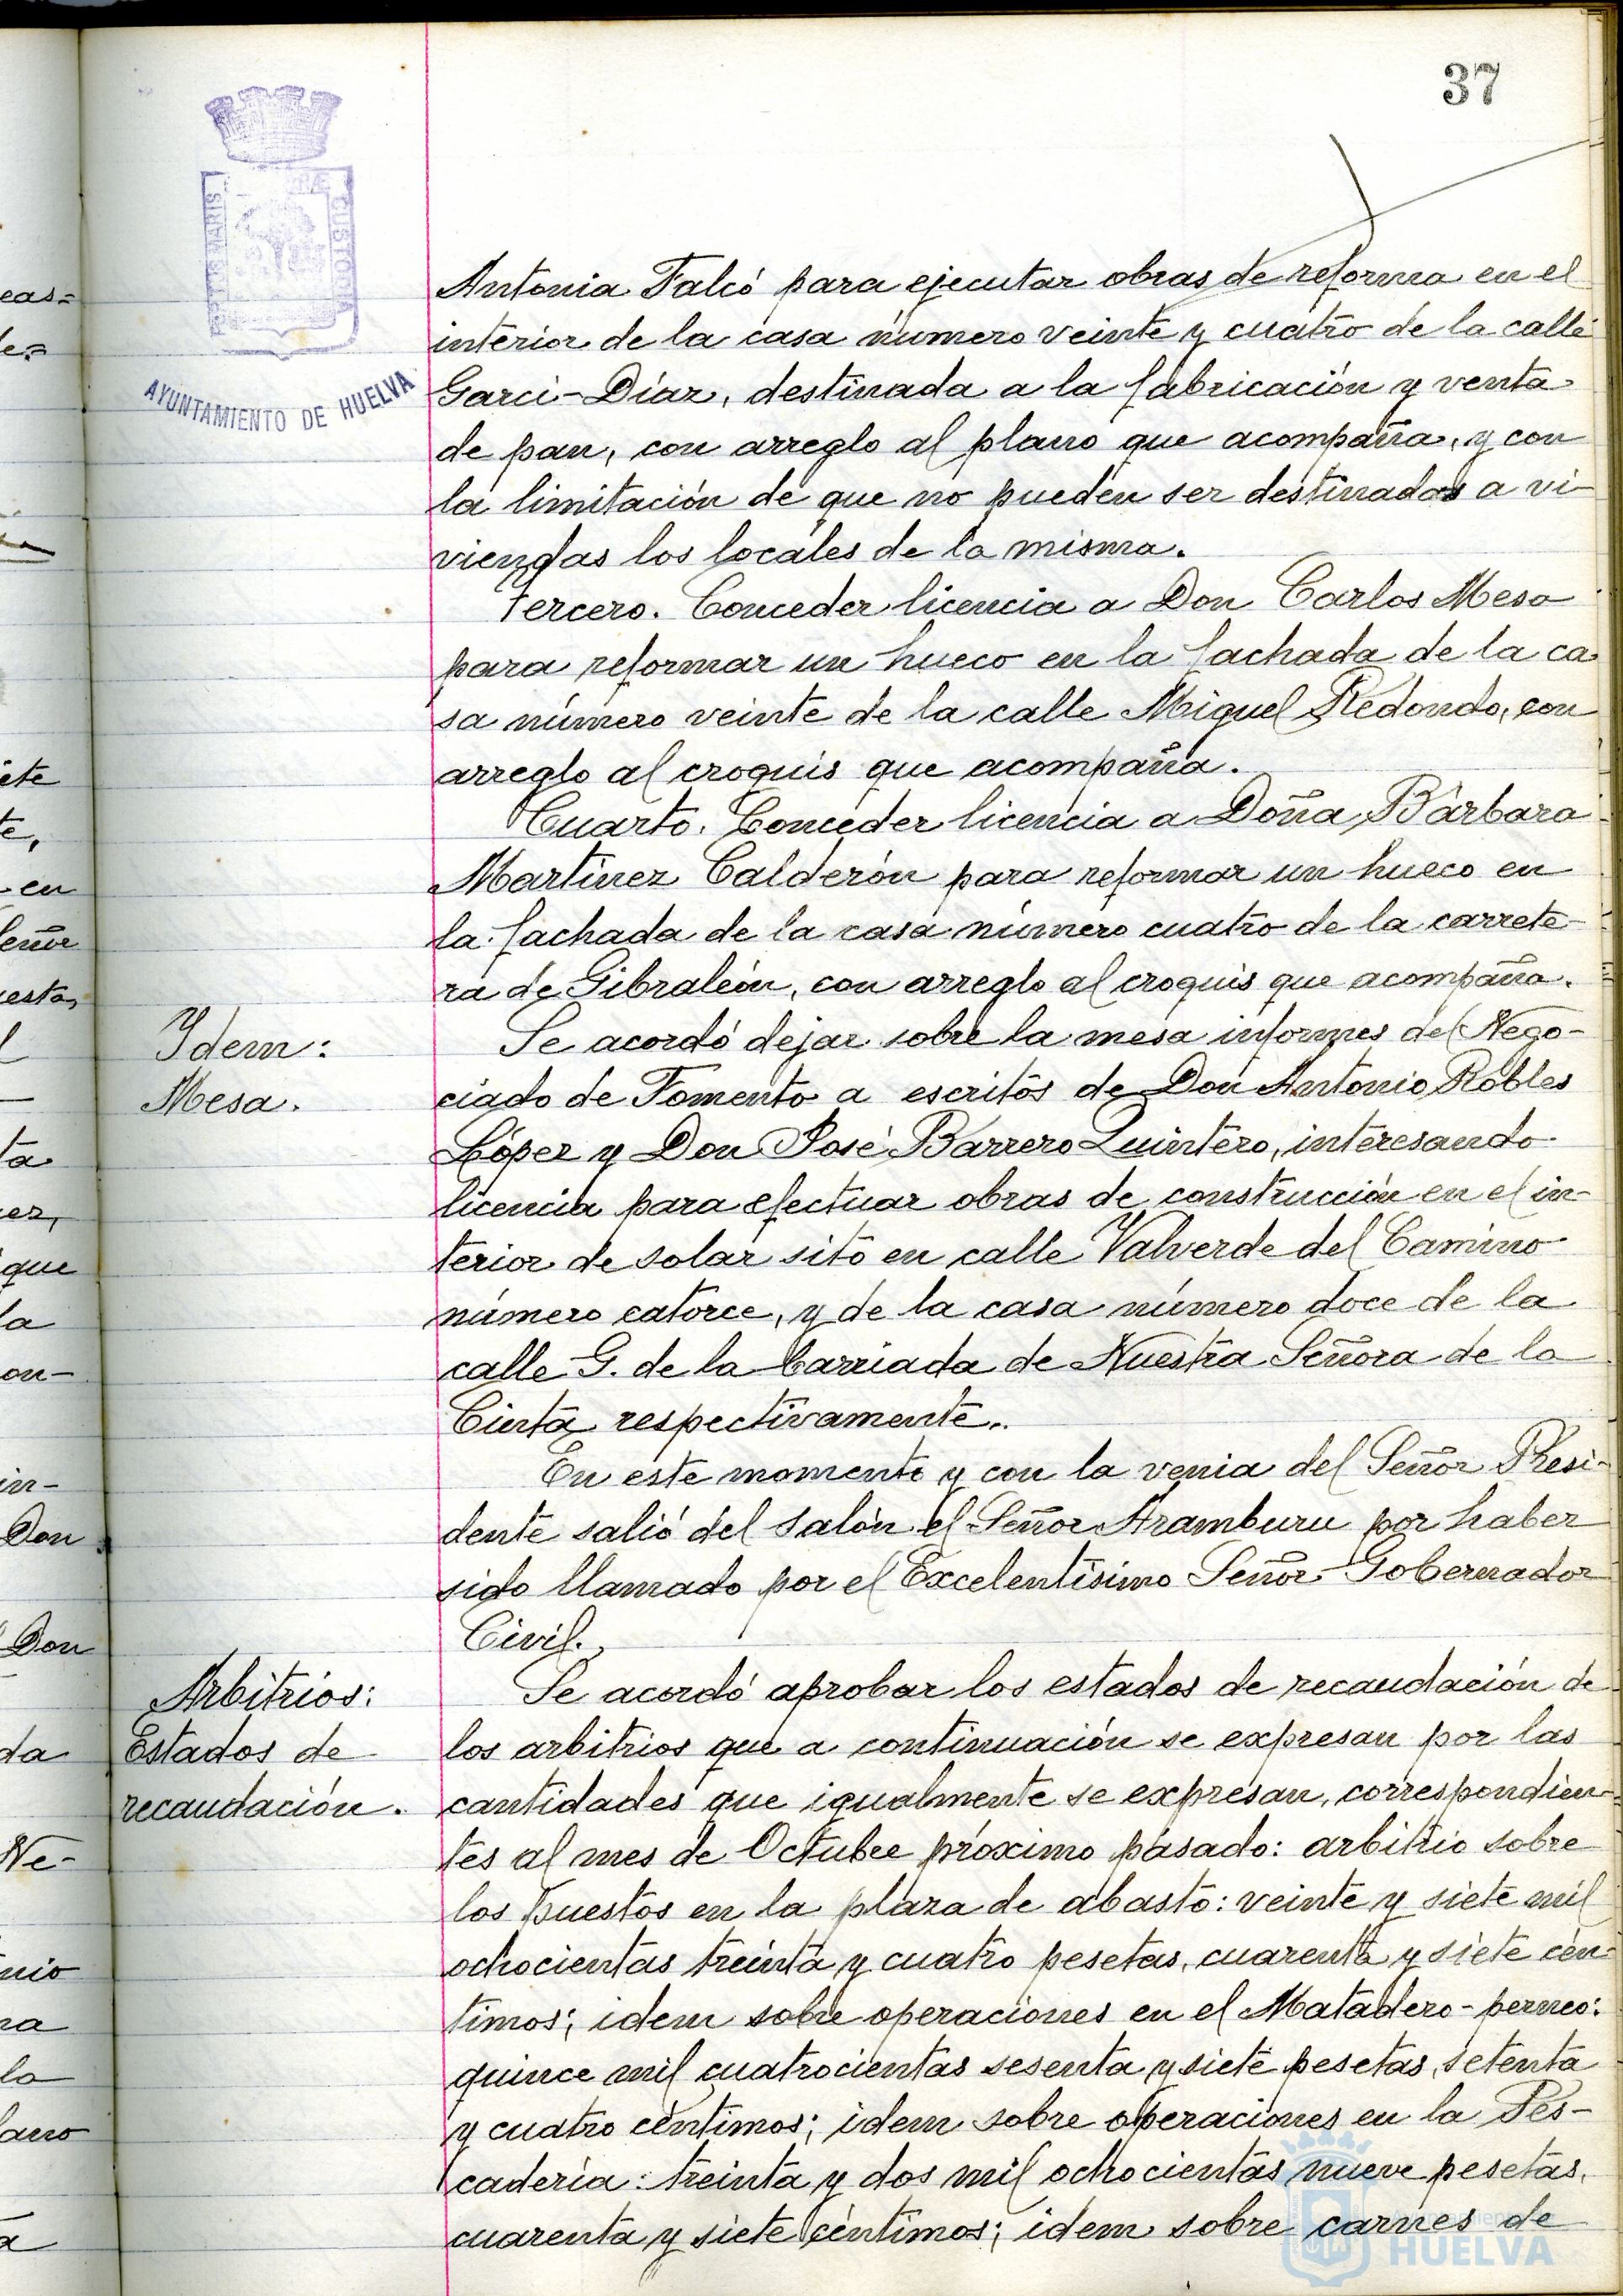 37
PORTUS MARIS
TERRÆ
CUSTODIA
AYUNTAMIENTO DE HUELVA
Antonia Falcó para ejecutar obras de reforma en el
interior de la casa número veinte y cuatro de la calle
Garci-Díaz, destinada a la fabricación y venta
de pan, con arreglo al plano que acompaña, y con
la limitación de que no pueden ser destinados a vi-
viendas los locales de la misma.
Tercero. Conceder licencia a Don Carlos Meso
para reformar un hueco en la fachada de la ca
sa número veinte de la calle Miguel Redondo, con
arreglo al croquis que acompaña.
Cuarto. Conceder licencia a Doña Bárbara
Martínez Calderón para reformar un hueco en
la fachada de la casa número cuatro de la carrete-
ra de Gibraleón, con arreglo al croquis que acompaña.
Idem:
Mesa.
Se acordó dejar sobre la mesa informes del Nego-
ciado de Fomento a escritos de Don Antonio Robles
López y Don José Barrero Quintero, interesando
licencia para efectuar obras de construcción en el in-
terior de solar sito en calle Valverde del Camino
número catorce, y de la casa número doce de la
calle G. de la barriada de Nuestra Señora de la
Cinta respectivamente.
En este momento y con la venia del Señor Presi-
dente salió del salón el Señor Aramburu por haber
sido llamado por el Excelentísimo Señor Gobernador
Civil.
Arbitrios:
Estados de
recaudación.
Se acordó aprobar los estados de recaudación de
los arbitrios que a continuación se expresan por las
cantidades que igualmente se expresan, correspondien-
tes al mes de Octubre próximo pasado: arbitrio sobre
los puestos en la plaza de abasto: veinte y siete mil
ochocientas treinta y cuatro pesetas, cuarenta y siete cén-
timos; idem sobre operaciones en el Matadero-perneo:
quince mil cuatrocientas sesenta y siete pesetas, setenta
y cuatro céntimos; idem sobre operaciones en la Pes-
cadería: treinta y dos mil ochocientas nueve pesetas,
cuarenta y siete céntimos; idem sobre carnes de
HUELVA